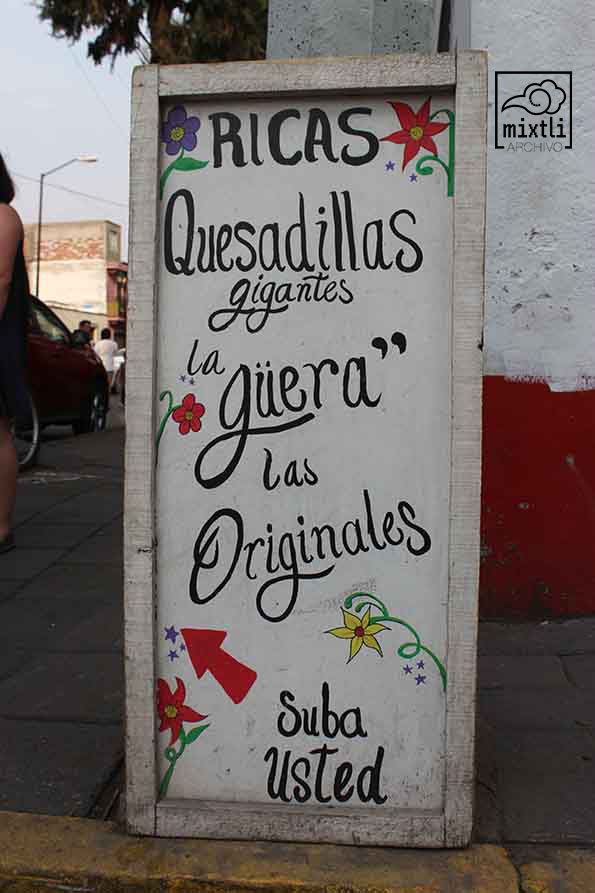 mixtli
ARCHIVO
RICAS
Quesadillas
gigantes
la güera”
las
Originales
Suba
Usted